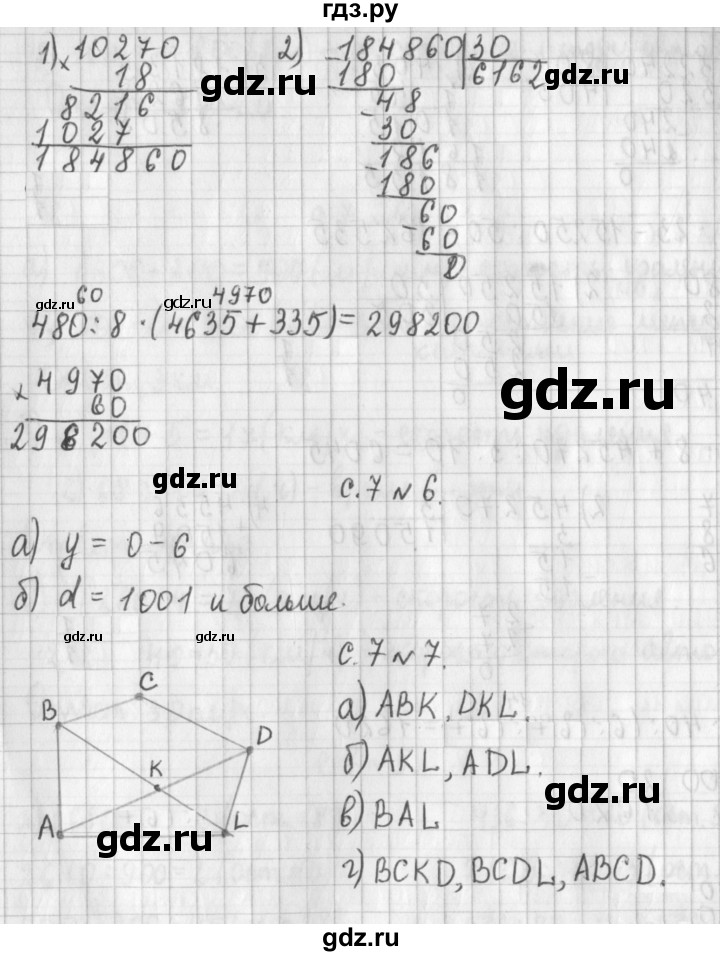 гдз.ру
1) × 10270
18
8216
1027
184860
2) - 184860 | 30
180 | 6162
- 48
30
- 186
180
60
- 60
0
60 4970
480 : 8 · (4635 + 335) = 298200
× 4970
60
298200
с. 7 № 6.
а) y = 0 - 6
б) d = 1001 и больше.
с. 7 № 7.
а) ABK, DKL.
б) AKL, ADL.
в) BAL
г) BCKD, BCDL, ABCD.
B C D K A L
gdz.ru
gdz.ru
gdz.ru
gdz.ru
gdz.ru
gdz.ru
gdz.ru
gdz.ru
gdz.ru
gdz.ru
gdz.ru